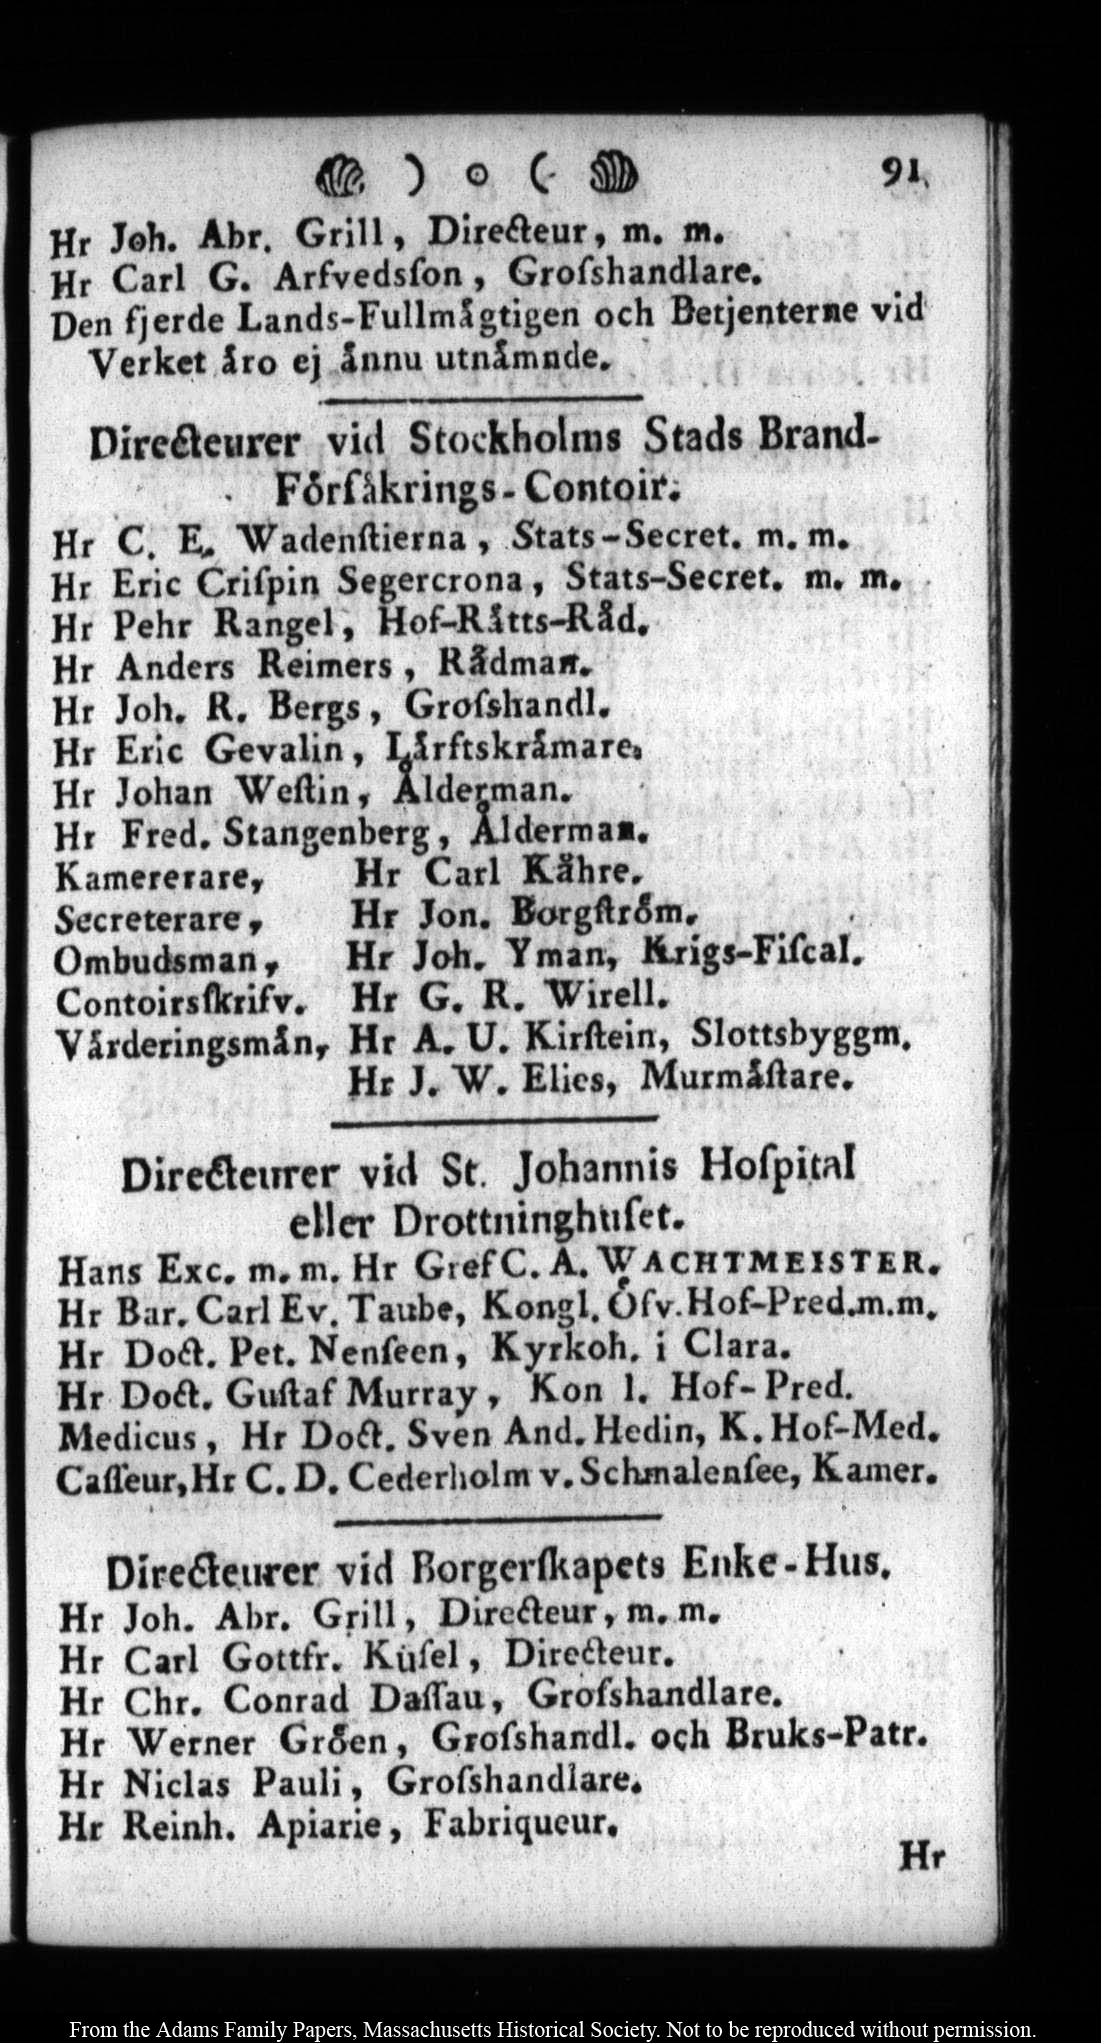 ) o ( 91.
Hr Joh. Abr. Grill, Directeur, m. m.
Hr Carl G. Arfvedsſon, Groſshandlare.
Den fjerde Lands-Fullmågtigen och Betjenterne vid
Verket åro ej ånnu utnåmnde.
Directeurer vid Stockholms Stads Brand-
Förſåkrings-Contoir.
Hr C. E. Wadenſtierna, Stats-Secret. m. m.
Hr Eric Criſpin Segercrona, Stats-Secret. m. m.
Hr Pehr Rangel, Hof-Råtts-Råd.
Hr Anders Reimers, Rådman.
Hr Joh. R. Bergs, Groſshandl.
Hr Eric Gevalin, Lårftskråmare.
Hr Johan Weſtin, Ålderman.
Hr Fred. Stangenberg, Ålderman.
Kamererare, Hr Carl Kåhre.
Secreterare, Hr Jon. Borgſtröm.
Ombudsman, Hr Joh. Yman, Krigs-Fiſcal.
Contoirsſkrifv. Hr G. R. Wirell.
Vårderingsmån, Hr A. U. Kirſtein, Slottsbyggm.
Hr J. W. Elies, Murmåſtare.
Directeurer vid St. Johannis Hoſpital
eller Drottninghuſet.
Hans Exc. m. m. Hr Gref C. A. WACHTMEISTER.
Hr Bar. Carl Ev. Taube, Kongl. Öfv. Hof-Pred. m. m.
Hr Doct. Pet. Nenſeen, Kyrkoh. i Clara.
Hr Doct. Guſtaf Murray, Kon l. Hof-Pred.
Medicus, Hr Doct. Sven And. Hedin, K. Hof-Med.
Caſſeur, Hr C. D. Cederholm v. Schmalenſee, Kamer.
Directeurer vid Borgerſkapets Enke-Hus.
Hr Joh. Abr. Grill, Directeur, m. m.
Hr Carl Gottfr. Küſel, Directeur.
Hr Chr. Conrad Daſſau, Groſshandlare.
Hr Werner Gröen, Groſshandl. och Bruks-Patr.
Hr Niclas Pauli, Groſshandlare.
Hr Reinh. Apiarie, Fabriqueur.
Hr
From the Adams Family Papers, Massachusetts Historical Society. Not to be reproduced without permission.